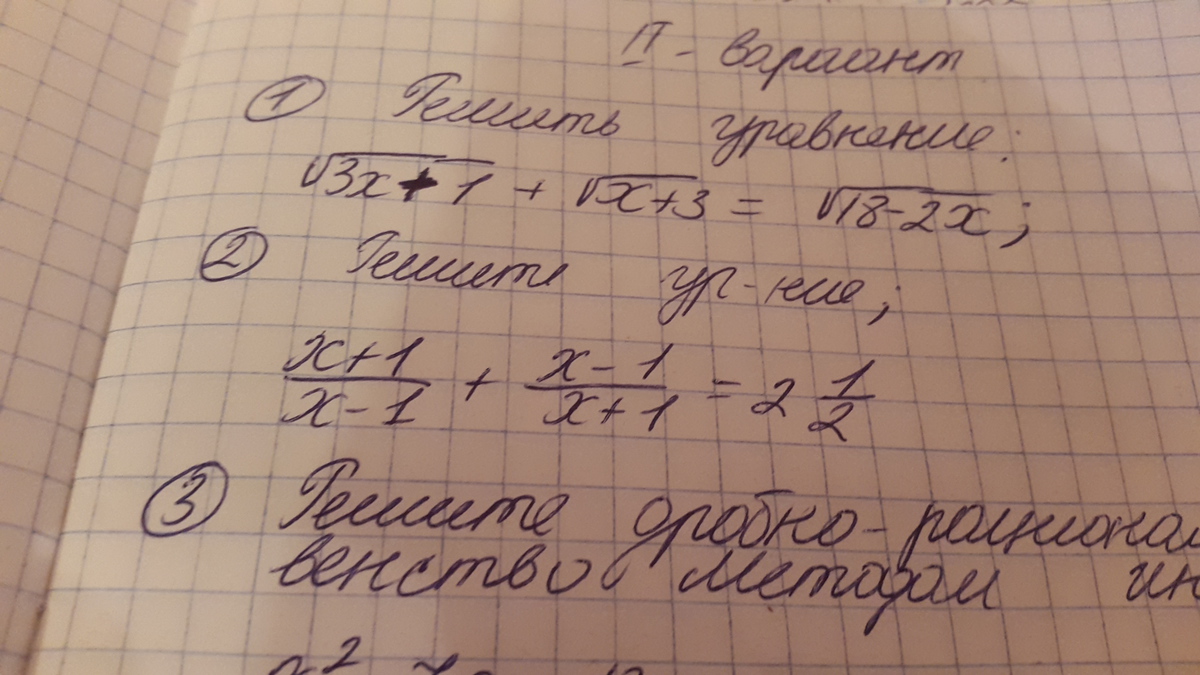 II - вариант
① Решить уравнение:
√3x + 1 + √x+3 = √18-2x;
② Решите ур-ние;
x+1/x-1 + x-1/x+1 = 2 1/2
③ Решите дробно-рационал
венство методом ин